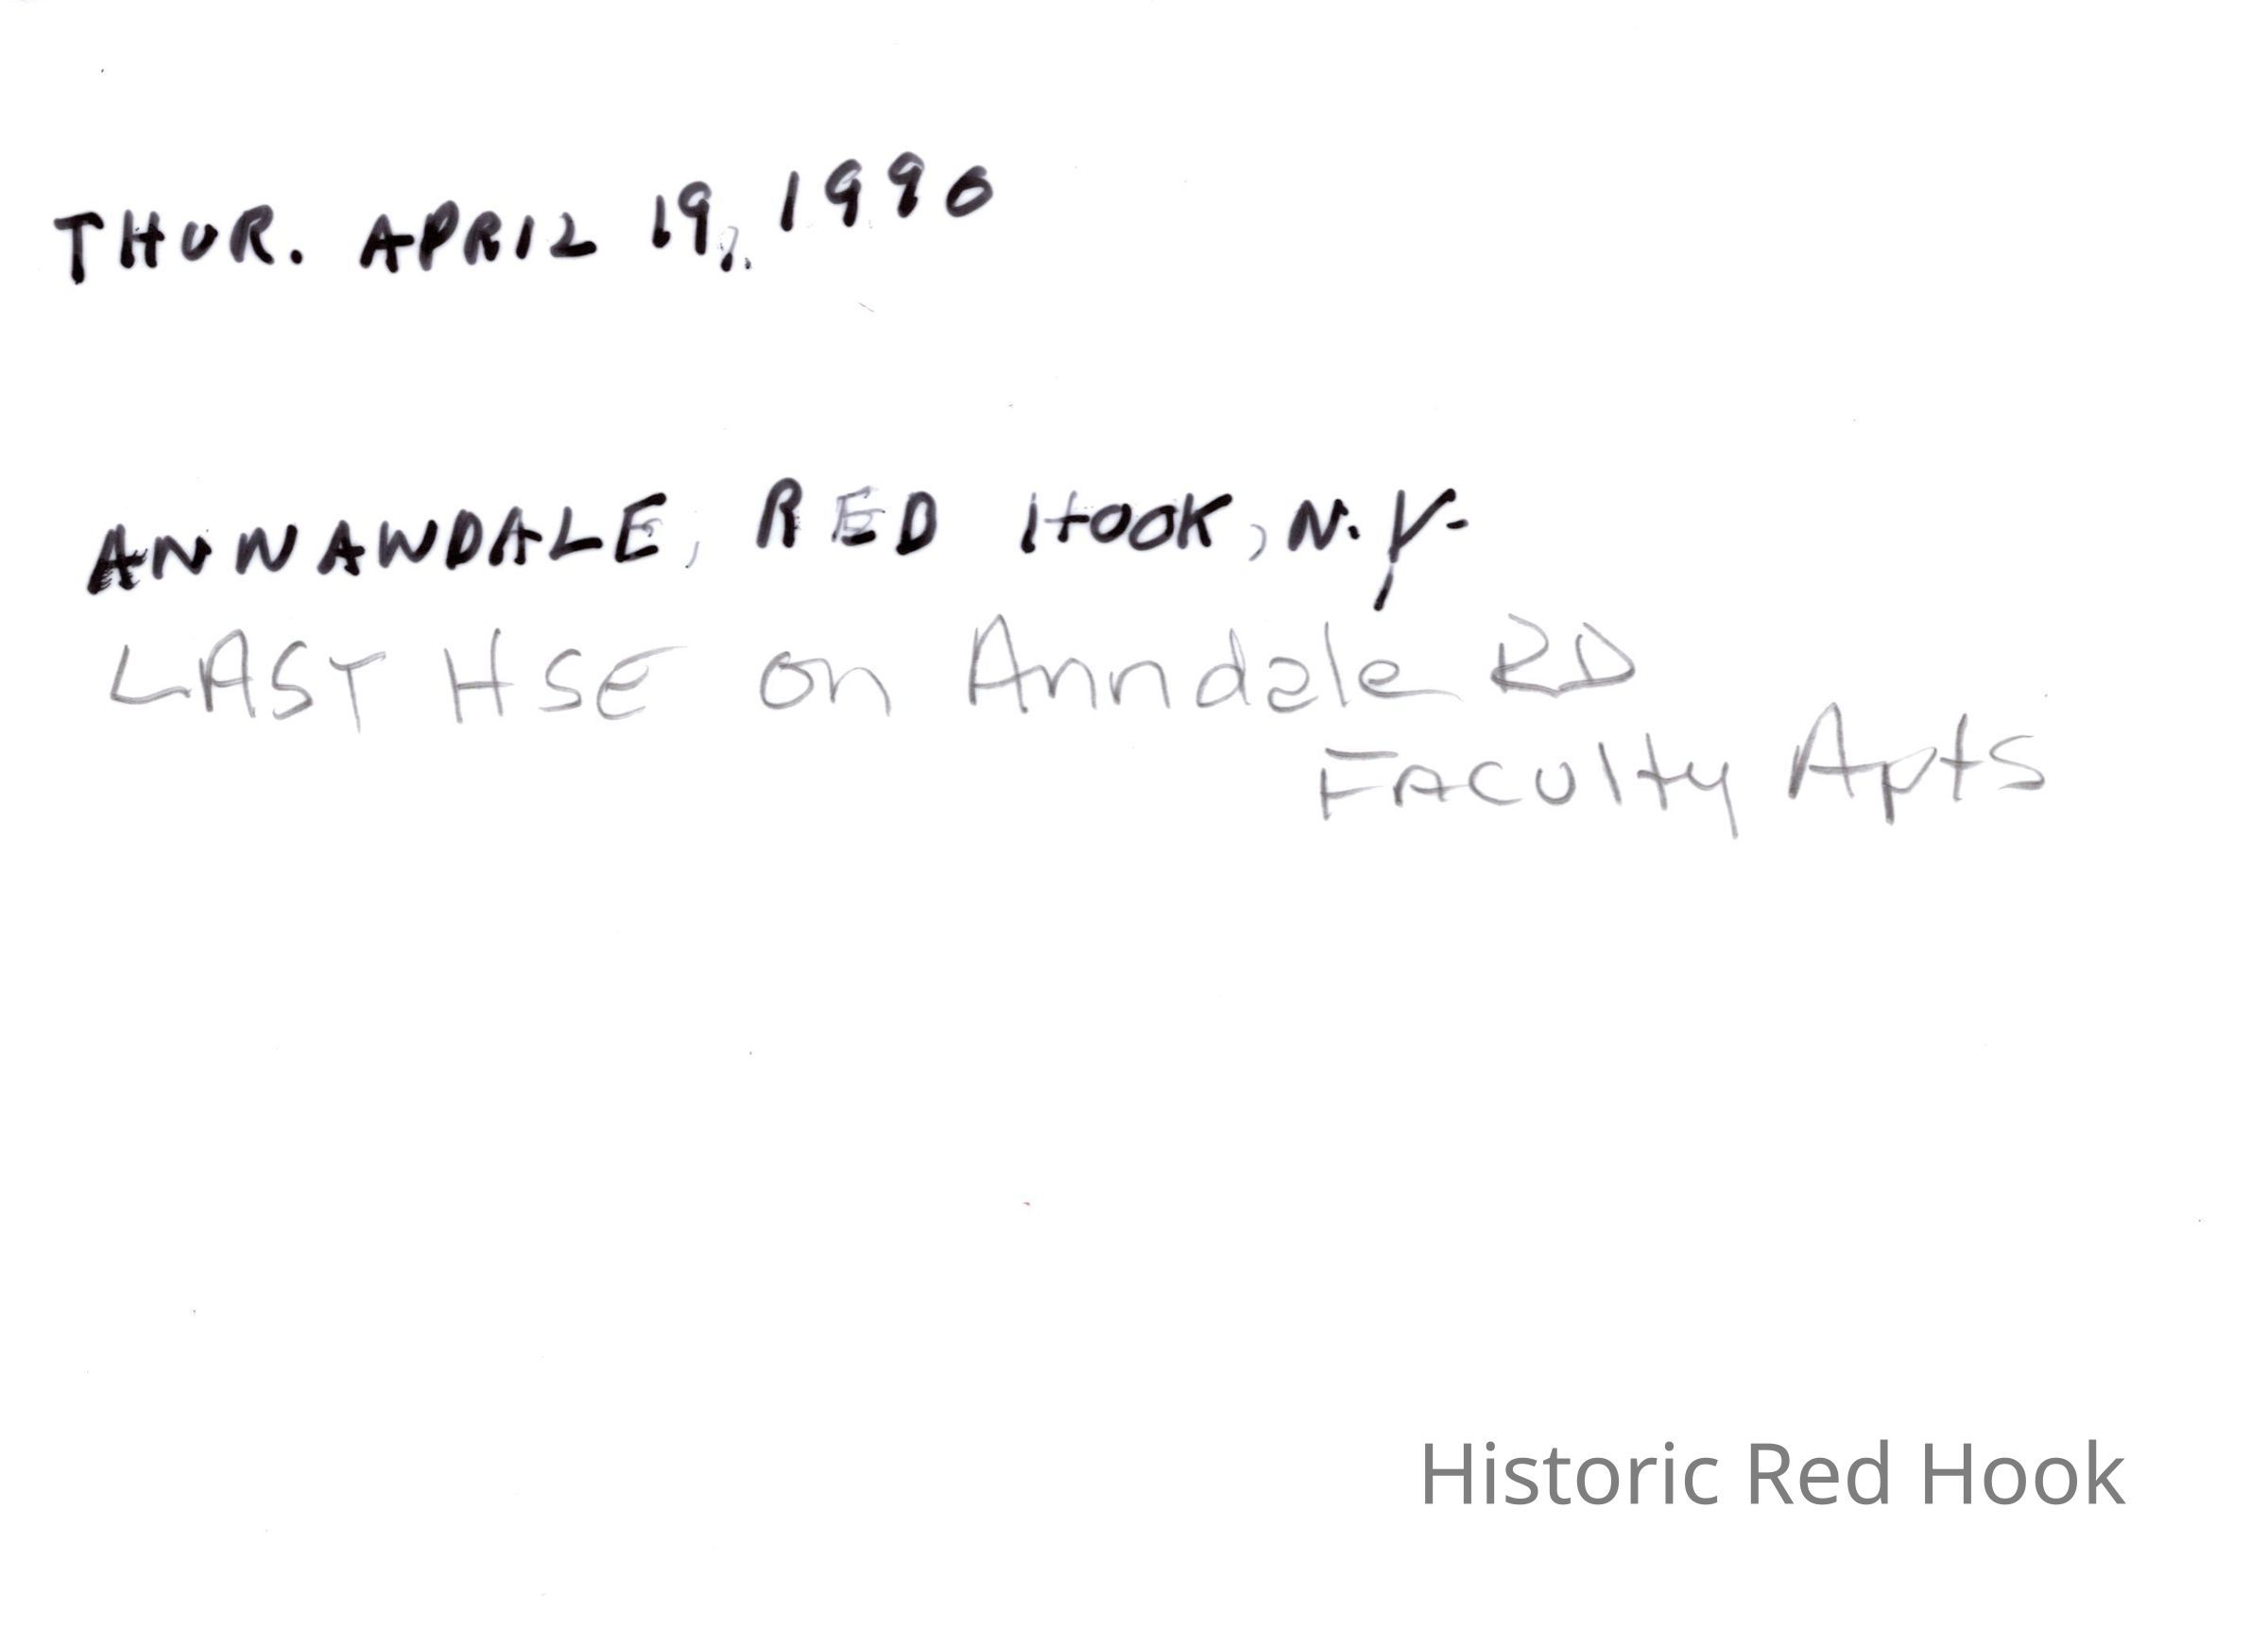 THUR. APRIL 19, 1990
ANNANDALE, RED HOOK, N.Y.
LAST HSE on Anndale RD
FACulty Apts
Historic Red Hook